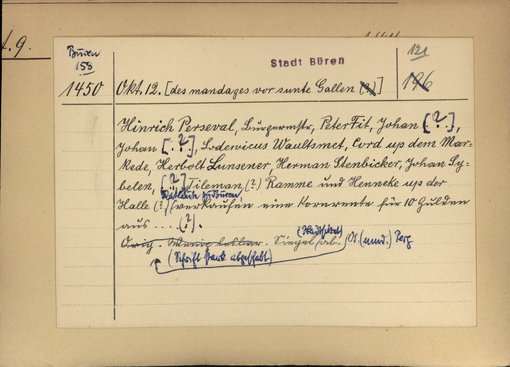 t. 9.
Büren
158
Stadt Büren
121
1450
Okt. 12. [des mandages vor sunte Gallen (?)]
196
Hinrich Perseval, Burgermstr, Peter Fit, Johan [.?.],
Johan [.?.], Lodewicus Waultsmet, Cord up dem Mar-
kede, Herbolt Lunsener, Herman Stenbicker, Johan Sy-
belen, [.?.] Tileman (?) Ramme und Henneke up der
Ratsleute zu Büren,
Halle (?) verkaufen eine Kornrente für 10 Gulden
aus ... (?).
(Stadtsekret)
Orig. Wenig lesbar. Siegel ab. Or. (mnd.) Perg
(Schrift stark abgeschabt)